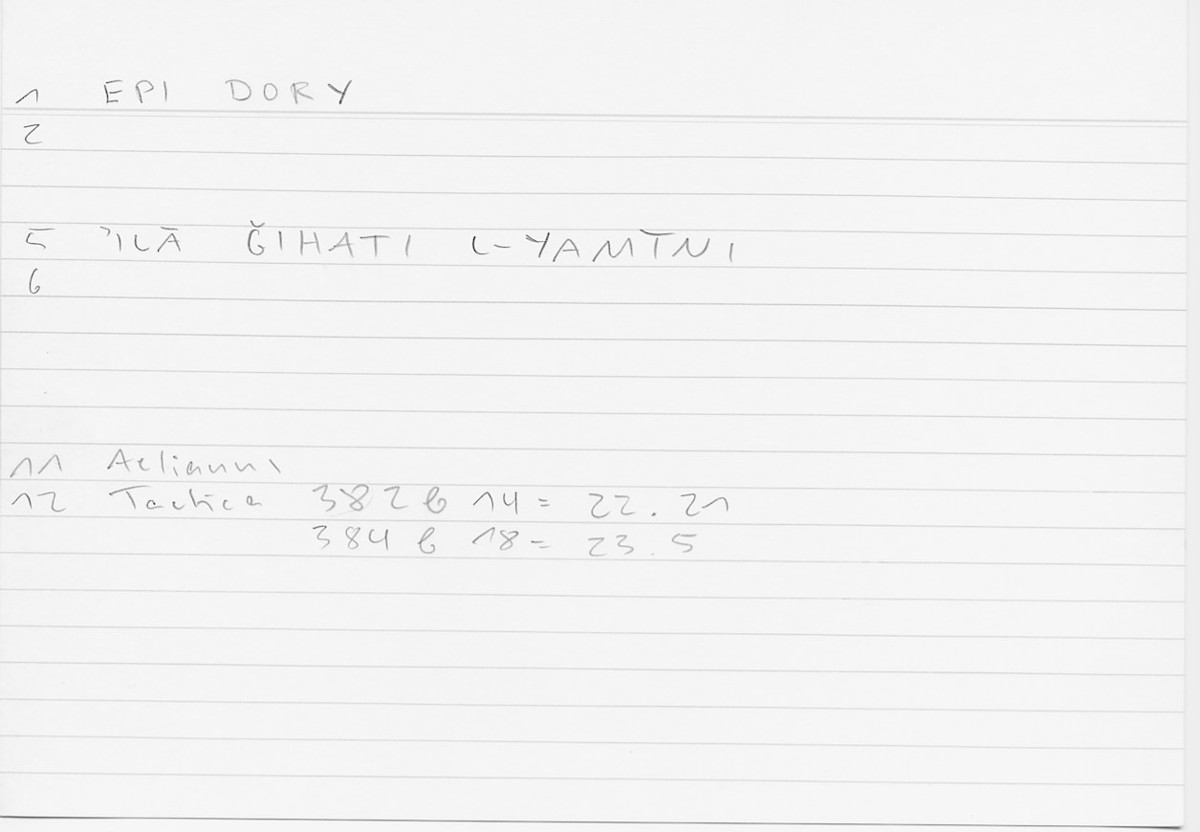 1 EPI DORY
2
5 ʾILĀ ǦIHATI L-YAMĪNI
6
11 Aelianus
12 Tactica 382 b 14 = 22. 21
384 b 18 = 23. 5